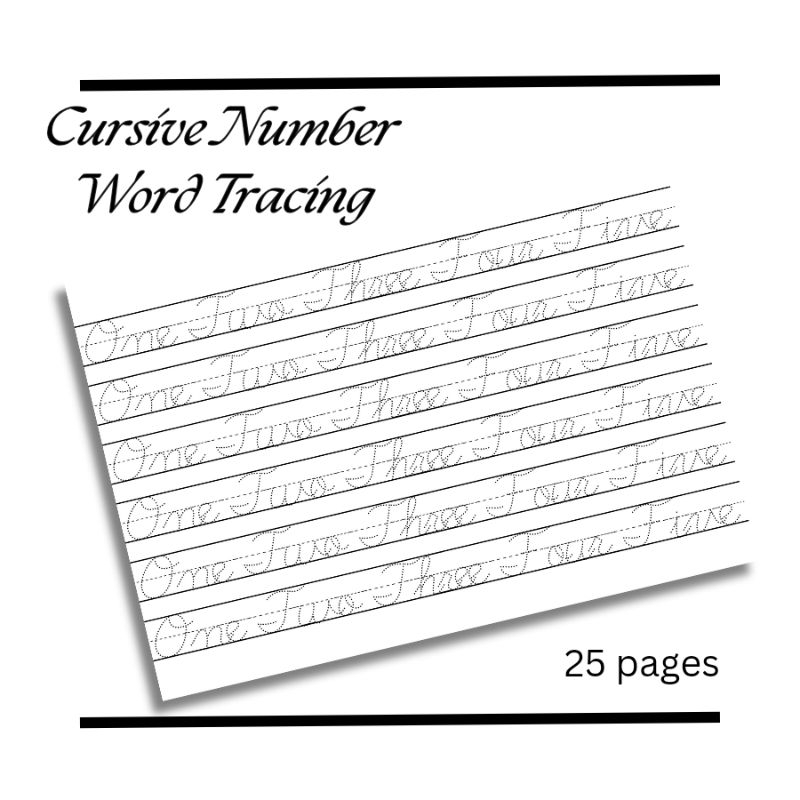 Cursive Number
Word Tracing
One Two Three Four Five
One Two Three Four Five
One Two Three Four Five
One Two Three Four Five
One Two Three Four Five
One Two Three Four Five
25 pages